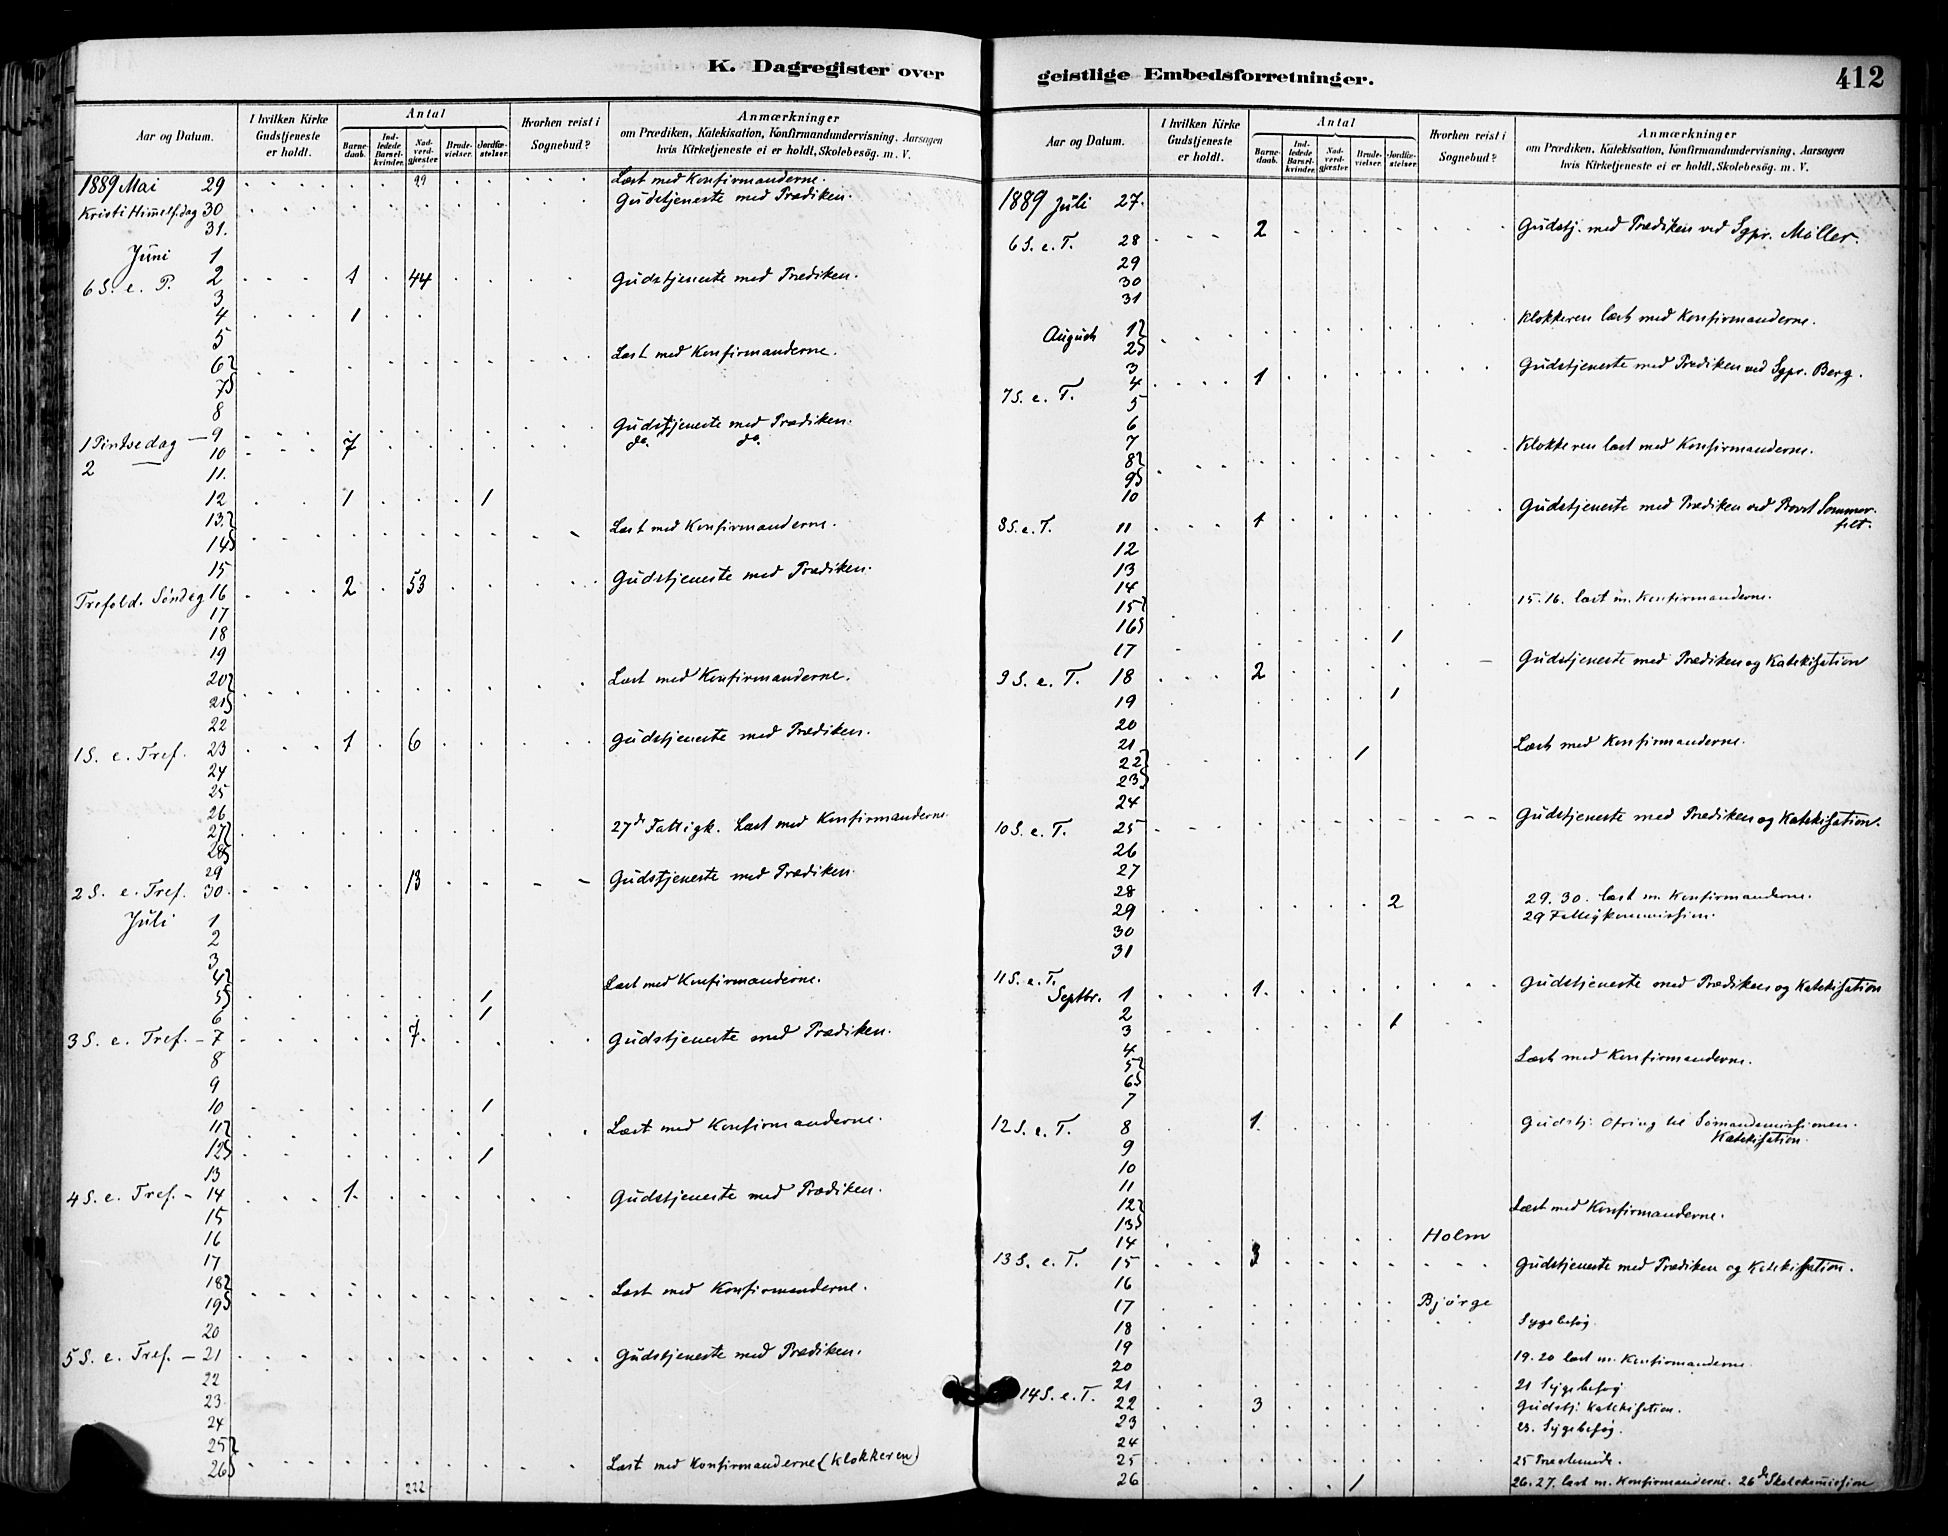 K. Dagregister over
Aar og Datum.
I hvilken Kirke Gudstjeneste er holdt.
Antal
Barnedaab.
Indledede Barselkvinder.
Nadverdgjester
Brudevielser.
Jordfæstelser
Hvorhen reist i Sognebud?
Anmærkninger
om Prædiken, Katekisation, Konfirmandundervisning, Aarsagen
hvis Kirketjeneste ei er holdt, Skolebesøg. m. V.
1889 Mai 29 29 Læst med Konfirmanderne.
Kristi Himmelf.dag 30 Gudstjeneste med Prædiken.
31.
Juni 1
6 S. e. P. 2 1 44 Gudstjeneste med Prædiken.
3
4 1
5
6 Læst med Konfirmanderne.
7
8
1 Pintsedag — 9 Gudstjeneste med Prædiken.
2 — 10 7 do. do.
11.
12 1 1
13. Læst med Konfirmanderne.
14
15
Trefold. Søndag 16 2 53 Gudstjeneste med Prædiken.
17
18
19
20 Læst med Konfirmanderne.
21
22
1 S. e. Tref. 23 1 6 Gudstjeneste med Prædiken.
24
25
26
27 27d Fattigk. Læst med Konfirmanderne
28
29
2 S. e. Tref. 30. 13 Gudstjeneste med Prædiken.
Juli 1
2
3
4 Læst med Konfirmanderne.
5 1
6 1
3 S. e. Tref. – 7 7. Gudstjeneste med Prædiken.
8
9
10 1
11 Læst med Konfirmanderne.
12 1
13
4 S. e. Tref. – 14 1. Gudstjeneste med Prædiken.
15
16
17
18 Læst med Konfirmanderne.
19
20
5 S. e. Tref. — 21 Gudstjeneste med Prædiken.
22
23
24
25
26 Læst med Konfirmanderne (Klokkeren)
222
geistlige Embedsforretninger.
412
Aar og Datum.
I hvilken Kirke Gudstjeneste er holdt.
Antal
Barnedaab.
Indledede Barselkvinder.
Nadverdgjester.
Brudevielser.
Jordfæstelser
Hvorhen reist i Sognebud?
Anmærkninger
om Prædiken, Katekisation, Konfirmandundervisning, Aarsagen
hvis Kirketjeneste ei er holdt, Skolebesøg. m. V.
1889 Juli 27.
6 S. e. T. 28 2 Gudstj. med Prædiken ved Sgpr. Møller.
29
30
31
August 1 Klokkeren læst med Konfirmanderne.
2
3
7 S. e. T. 4 1 Gudstjeneste med Prædiken ved Sgpr. Berg.
5
6
7
8 Klokkeren læst med Konfirmanderne.
9
10
8 S. e. T. 11 1 Gudstjeneste med Prædiken ved Provst Sommerfelt.
12
13
14
15 15. 16. læst m. Konfirmanderne.
16 1
17
9 S. e. T. 18 2 Gudstjeneste med Prædiken og Katekisation
19 1
20
21
22 1 Læst med Konfirmanderne.
23
24
10 S. e. T. 25 Gudstjeneste med Prædiken og Katekisation.
26
27
28
29 2 29. 30. læst m. Konfirmanderne.
29 Fattigkommission.
30
31
11 S. e. T.
Septbr. 1 1. Gudstjeneste med Prædiken og Katekisation
2
3 1
4
5 Læst med Konfirmanderne.
6
7
12 S. e. T. 8 1. Gudstj. Ofring til Sømandsmissionen.
Katekisation.
9
10
11
12 Læst med Konfirmanderne.
13
14 Holm
13 S. e. T. 15 3 Gudstjeneste med Prædiken og Katekisation.
16
17 Bjørge
18 Sygebesøg.
19
20 19. 20 læst m. Konfirmanderne.
21 21 Sygebesøg
14 S. e. T. 22 3 Gudstj: Katekisation.
23 23. Sygebesøg.
24
25 25 Præstemøde.
26 1 26. 27. læst m. Konfirmanderne. 26de Skolekommission